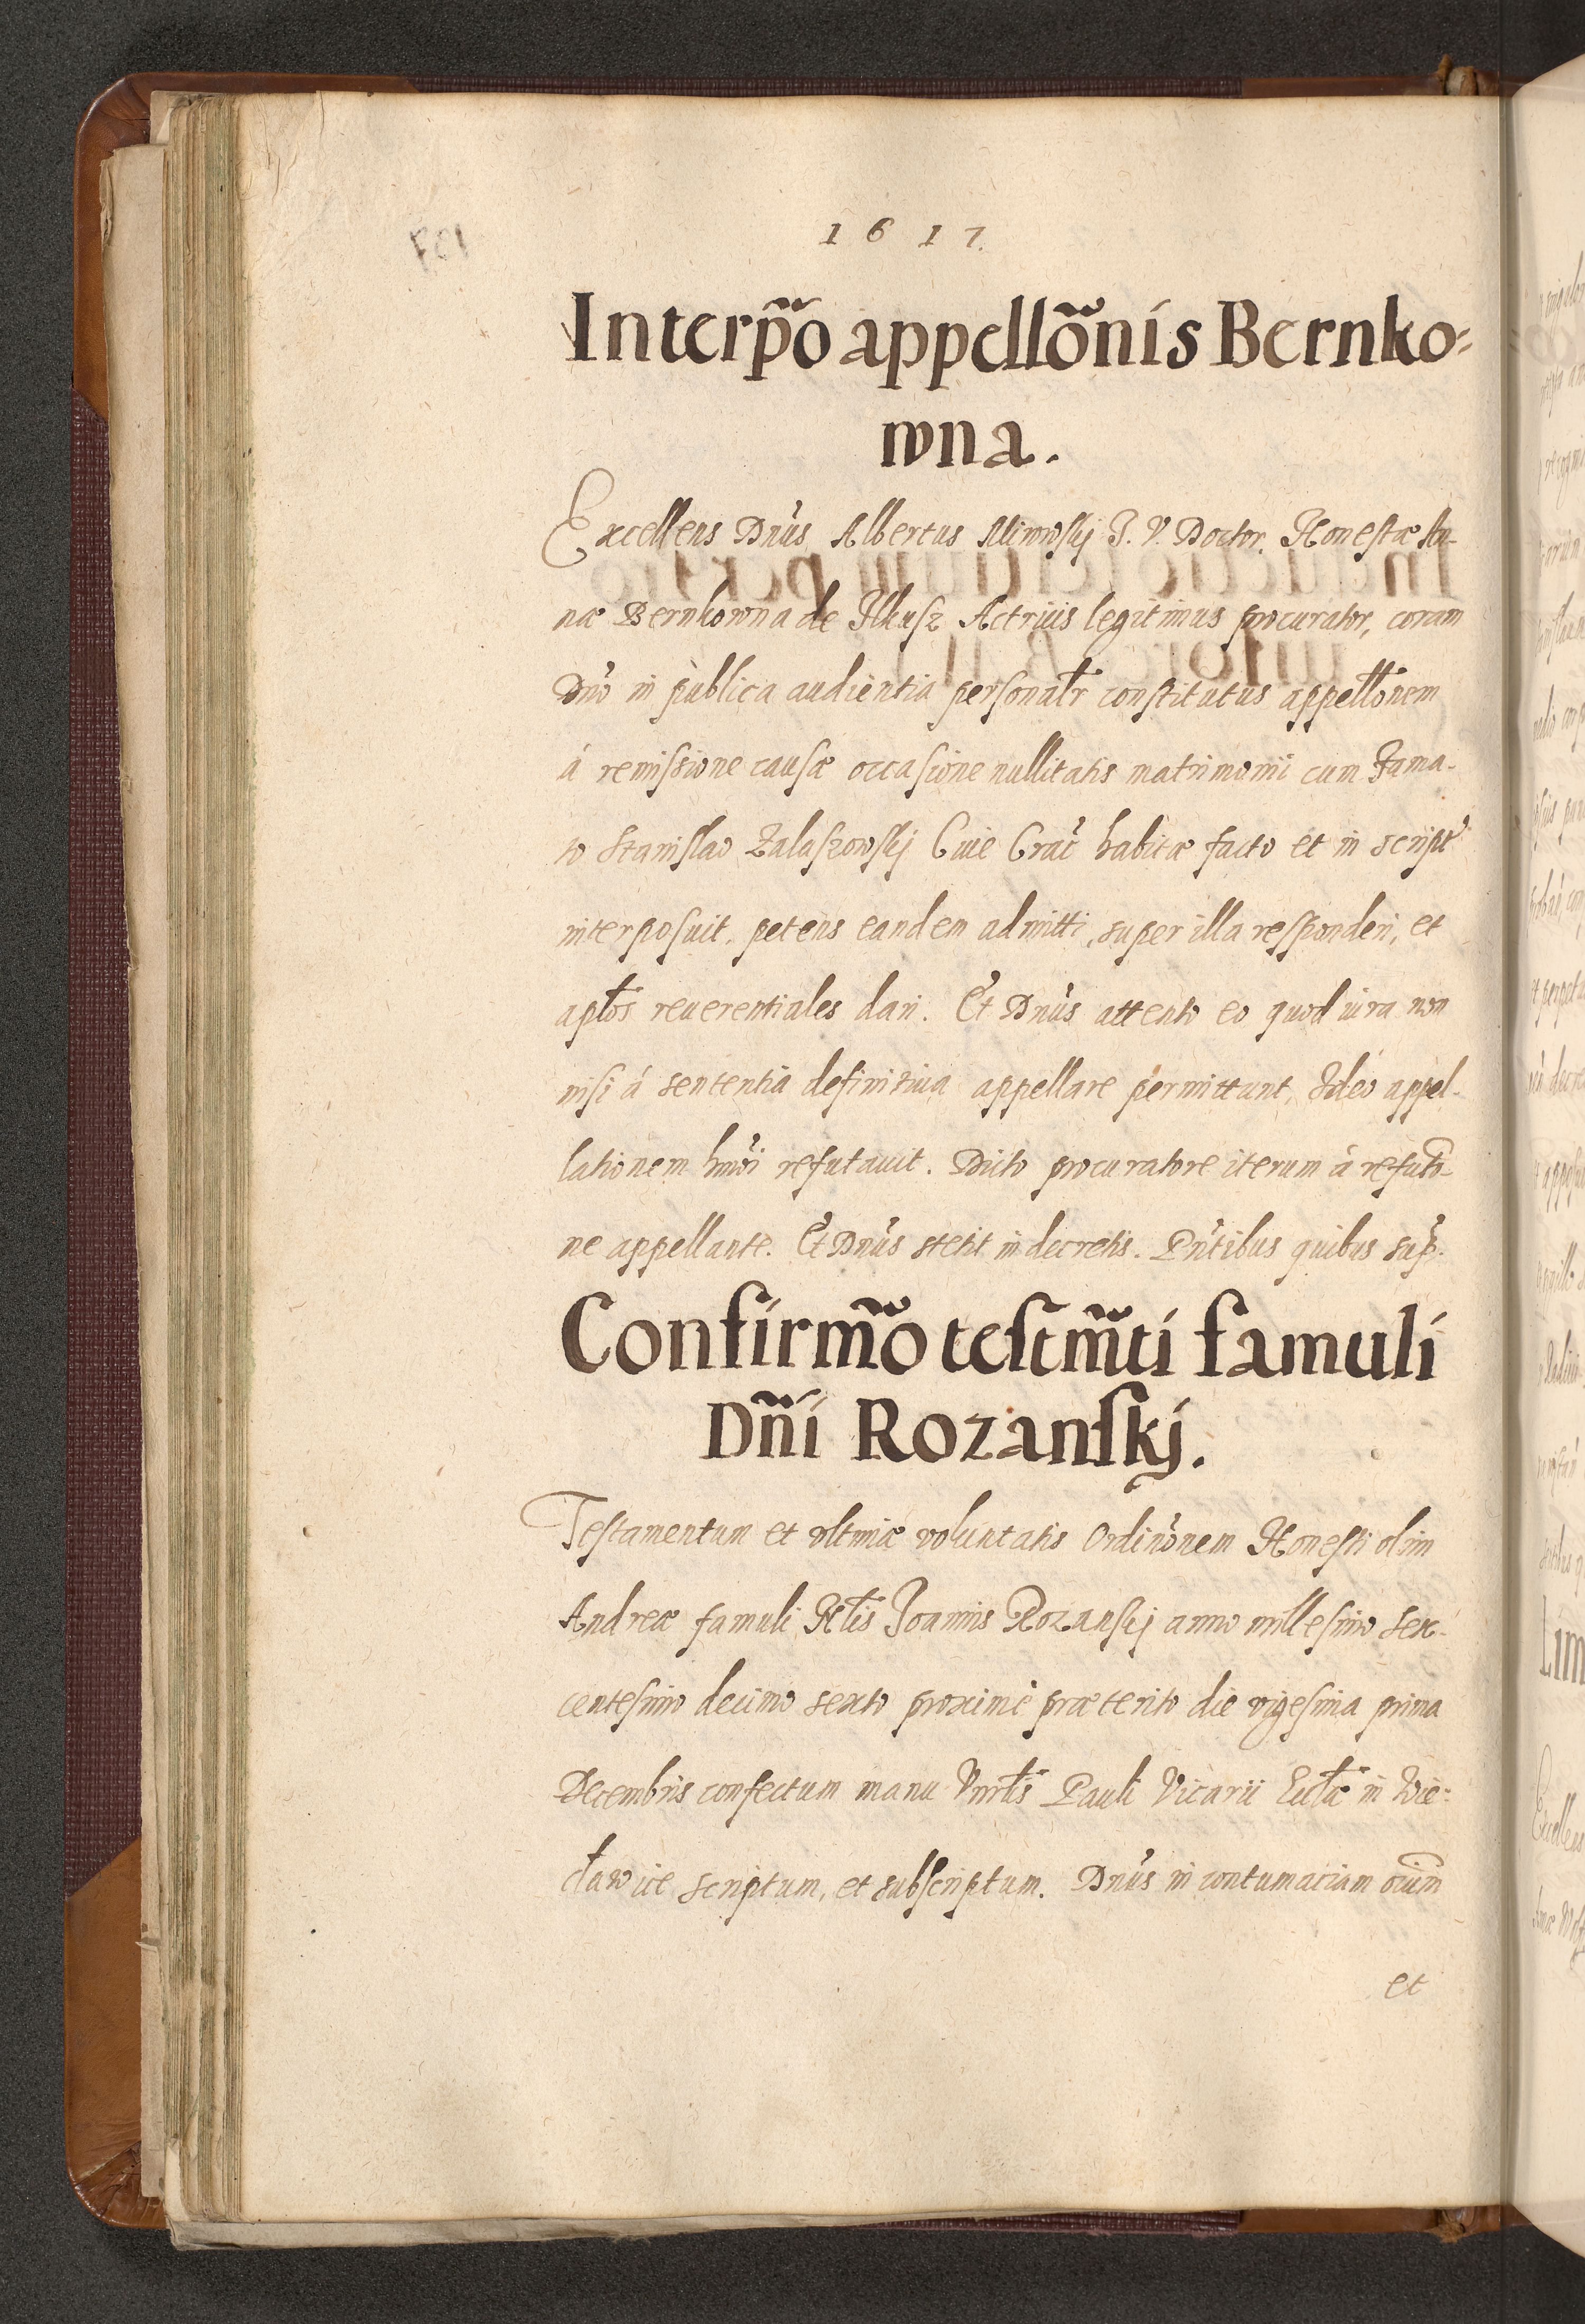 1617.
Interp̃o appellõnis Bernko-
wna.
Excellens Dnus Albertus Mirowskj J. V. Doctor. Honestæ An-
næ Bernkowna de Ilkusz Actricis legitimus procurator, coram
Dno in publica audientia personalr constitutus appellonem
á remissione causæ occasione nullitatis matrimonii cum Fama-
to Stanislao Zaluszowskj Ciue Crac habitæ facto et in script
interposuit, petens eandem admitti, super illa responderi, et
aptos reuerentiales dari. Et Dnus attento eo quod iura non
nisi á sententia definitiua appellare permittunt, Ideo appel-
lationem hmoi refutauit. Dicto procuratore iterum á refuto-
ne appellante. Et Dnus stetit in decretis. Pntibus quibus sup.
Confirm̃o testm̃ti famuli
Dñi Rozanskj.
Testamentum et vltimæ voluntatis Ordinonem Honesti olim
Andreæ famuli Nlis Joannis Rozanskj anno millesimo sex-
centesimo decimo sexto proximè præterito die vigesima prima
Decembris confectum manu Vnrlis Pauli Vicarii Ecclæ in Wie-
cławice scriptum, et subscriptum. Dnus in contumaciam oium
et